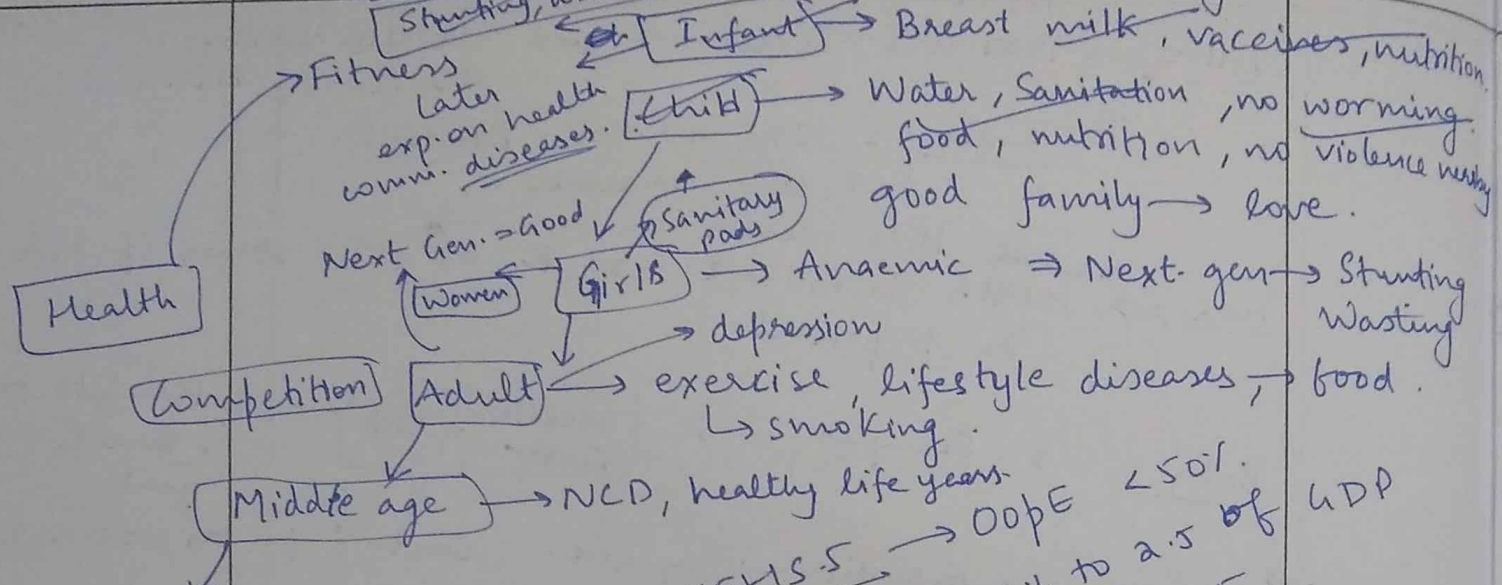 Stunting,
Infant → Breast milk, vaccines, nutrition
→ Fitness
Later
exp. on health
comm. diseases.
Child → Water, Sanitation, no worming
food, nutrition, no violence nearby
good family → love.
Sanitary
pads
Next Gen. = Good
Women
Girls → Anaemic ⇒ Next-gen → Stunting
Wasting
Health
→ depression
Competition
Adult → exercise, lifestyle diseases, → food.
↳ smoking.
Middle age → NCD, healthy life years.
→ OOPE < 50%.
to 2.5 of GDP